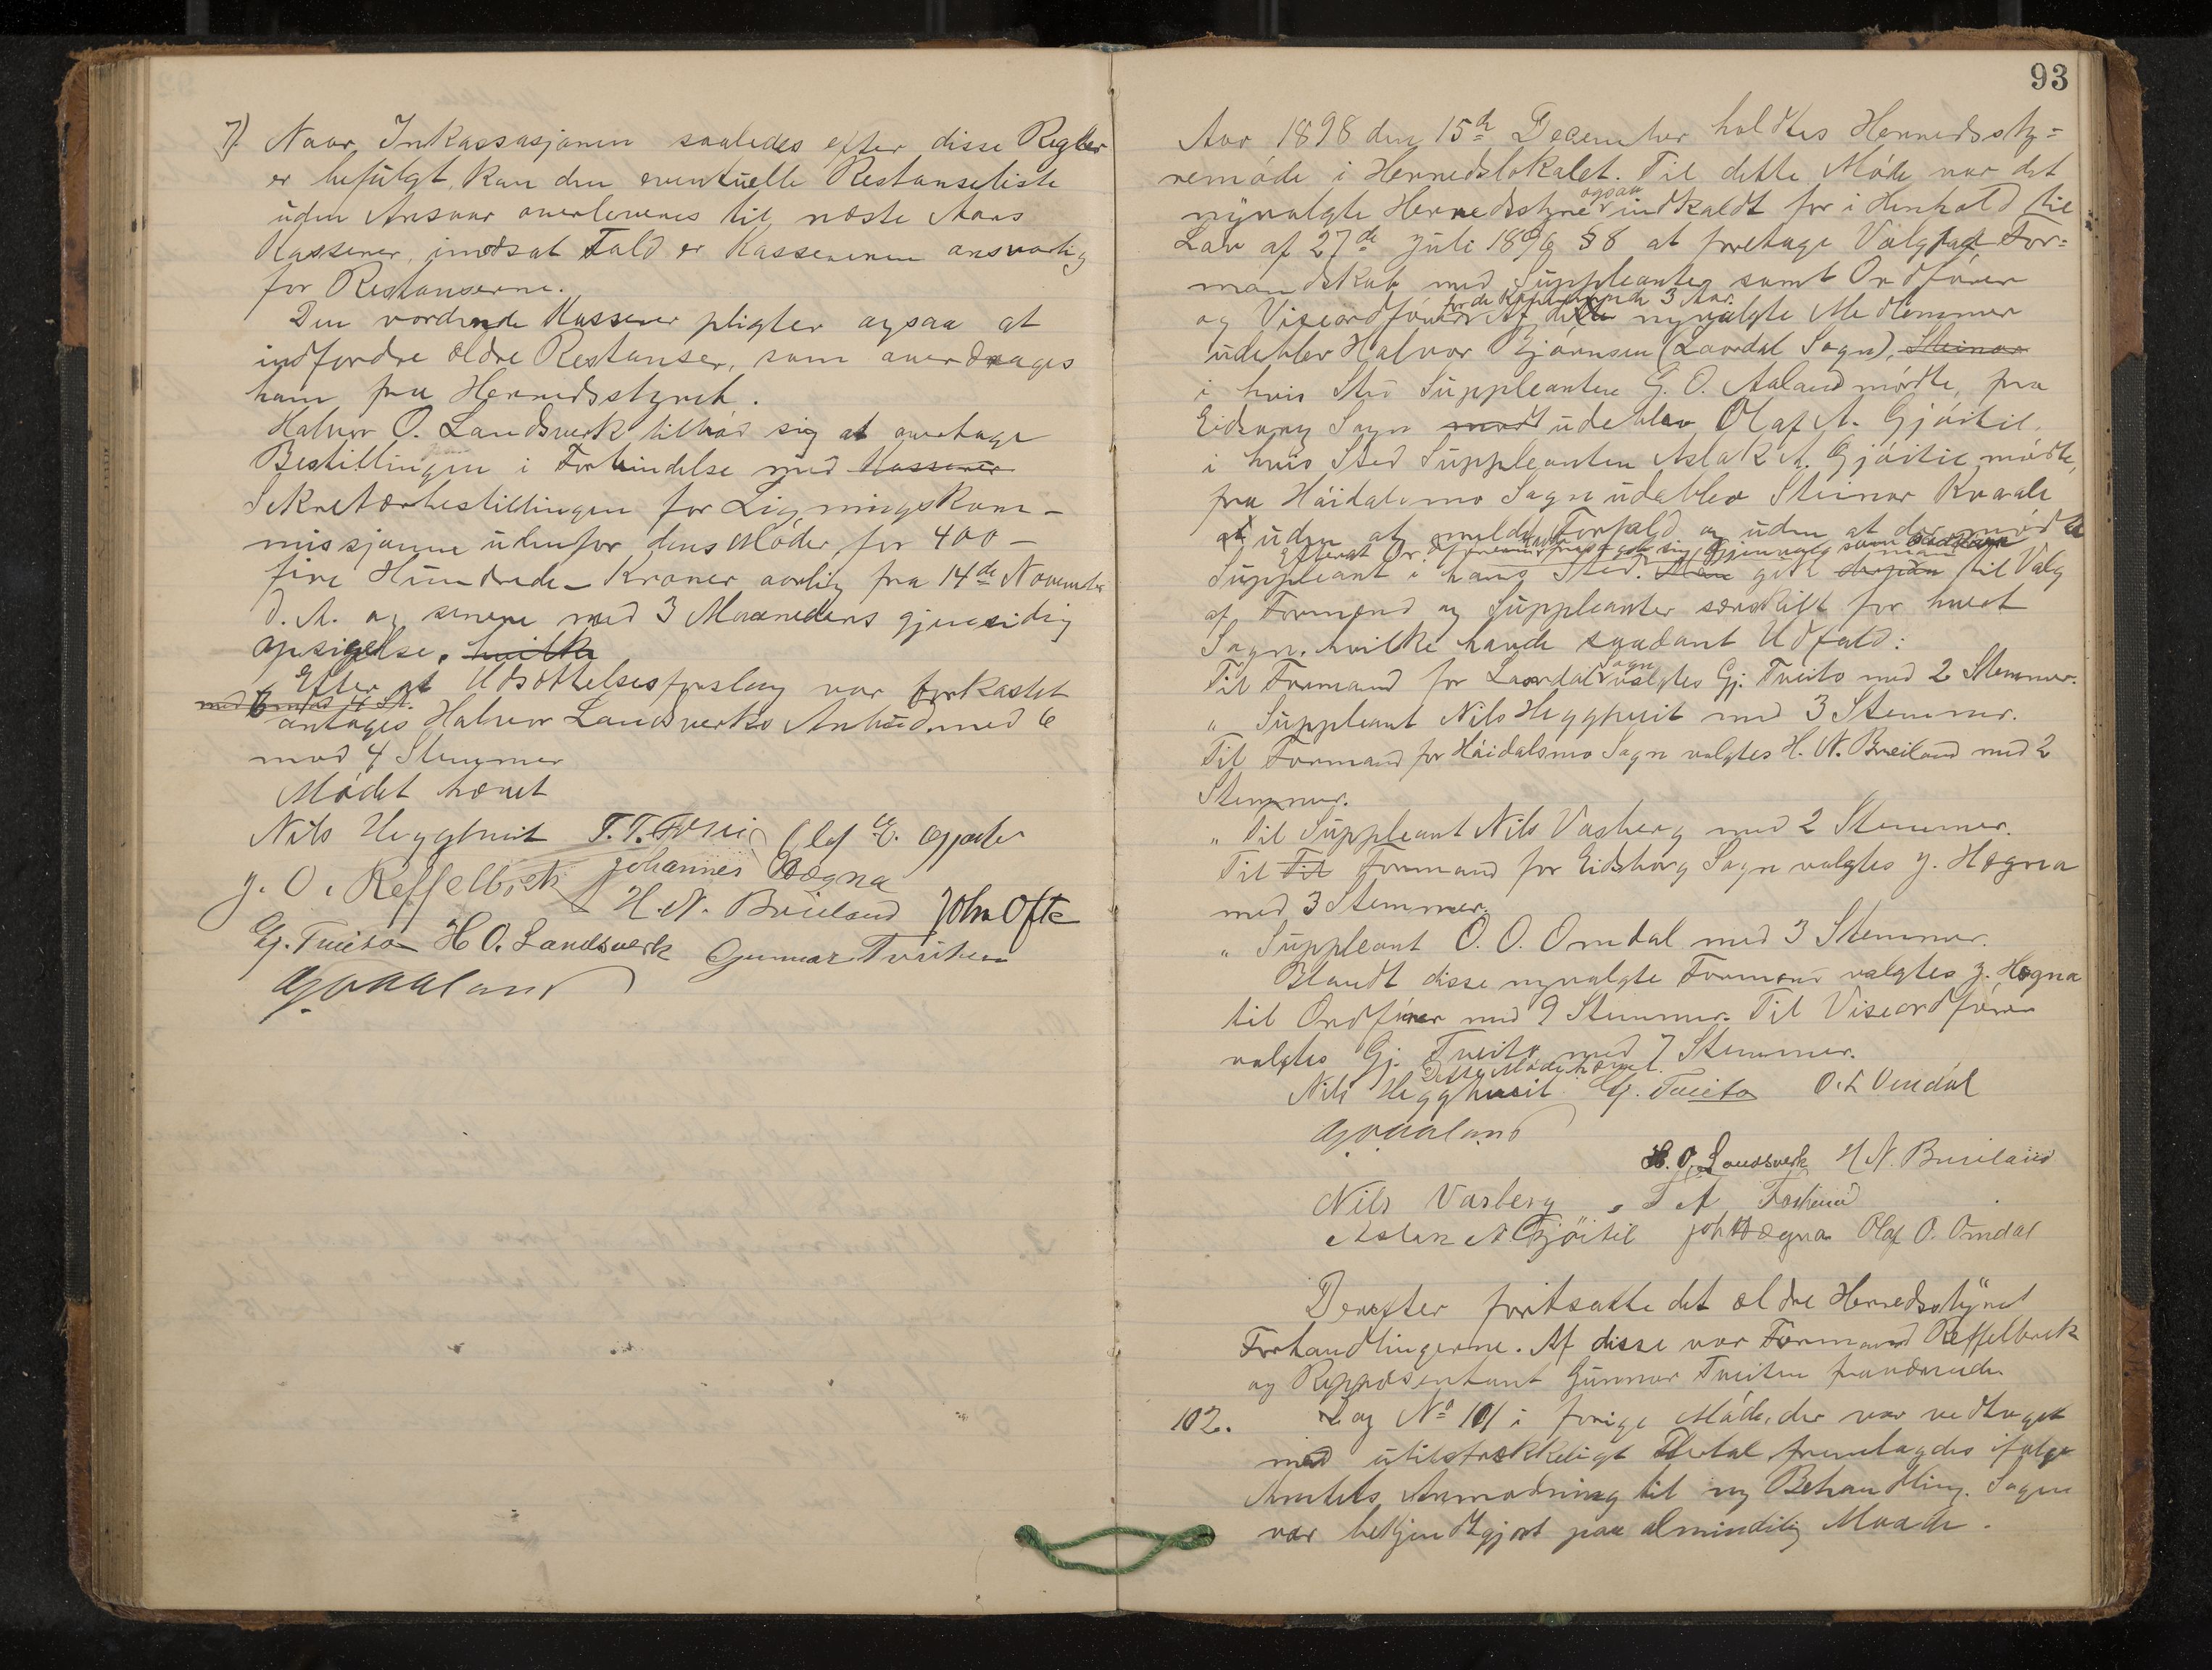 7) Naar Inkassasjonen saaledes efter disse Regler
er befulgt, kan den eventuelle Restanseliste
uden Ansvar overleveres til næste Aars
Kasserer, imodsat Fald er Kassereren ansvarlig
for Restanserne.
Den vordende Kasserer pligter ogsaa at
indfordre ældre Restanser, som overdrages
ham fra Herredsstyret.
Halvor O. Landsverk tilbød sig at overtage
Bestillingen i Forbindelse med Kasserer
Sekretærbestillingen for Ligningskom-
missjonen udenfor dens Møder for 400 -
fire Hundrede - Kroner aarlig fra 14de Novembr
d. A. og senere med 3 Maaneders gjensidig
opsigelse. hvilke
Efter at Udsættelsesforslag var forkastet
med 6 mod 4 St.
antages Halvor Landsverks Anbud med 6
mod 4 Stemmer
Mødet hævet
Nils Hegghuit Olaf
J. O. Reffelbæk Johannes Høgna
H. N. Breiland John Ofte
Gj. Tveito H O. Landsverk Gunnar Tveiten
G O Aaland
93
Aar 1898 den 15de December holdtes Herredssty=
remøde i Herredslokalet. Til dette Møde var det
nyvalgte Herredsstyre ogsaa indkaldt for i Henhold til
Lov af 27de Juli 1896 § 8 at foretage Valg paa For=
mandskab med Suppleanter samt Ordfører
for de kommende 3 Aar.
og Viseordfører Af dette nyvalgte Medlemmer
udeblev Halvor Bjørnsen (Laardal Sogn), Steinar
i hvis Sted Suppleanten G. O. Aaland mødte, fra
Eidsborg Sogn mødt udeblev Olaf A. Gjøitil.
i hvis Sted Suppleanten Aslak A. Gjøitil mødte,
fra Høidalsmo Sogn udeblev Steinar Kvaale
at uden at melde Forfald og uden at der mødte
Suppleant i hans Sted. Man gik man til Valg
af Formænd og Suppleanter særskilt for hvert
Sogn, hvilke havde saadant Udfald:
Til Formand for Laardal Sogn valgtes Gj. Tveito med 2 Stemmer.
" Suppleant Nils Hegghuit med 3 Stemmer.
Til Formand for Høidalsmo Sogn valgtes H. N. Breiland med 2
Stemmer.
" Til Suppleant Nils Vasberg med 2 Stemmer.
Til Til Formand for Eidsborg Sogn valgtes J. Høgna
med 3 Stemmer.
" Suppleant O. O. Omdal med 3 Stemmer.
Blandt disse nyvalgte Formænd valgtes J. Høgna
til Ordfører med 9 Stemmer. Til Viseordfører
valgtes Gj. Tveito med 7 Stemmer.
Dette Møde hævet.
Nils Hegghuit Gj. Tveito
G O Aaland
H. O. Landsverk H N. Breiland
Nils Vasberg
Aslak A Gjöitil Joh Høgna Olaf O. Omdal
Derefter fortsatte det ældre Herredsstyret
Forhandlingerne. Af disse var Formand Reffelbæk
og Repræsentant Gunnar Tveiten fraværende
102. Sag No 101 i forige Møde, der var vedtaget
med utilstrækkeligt Flertal fremlagdes ifølge
Amtets Anmodning til ny Behandling. Sagen
var bekjendtgjort paa almindelig Maade.